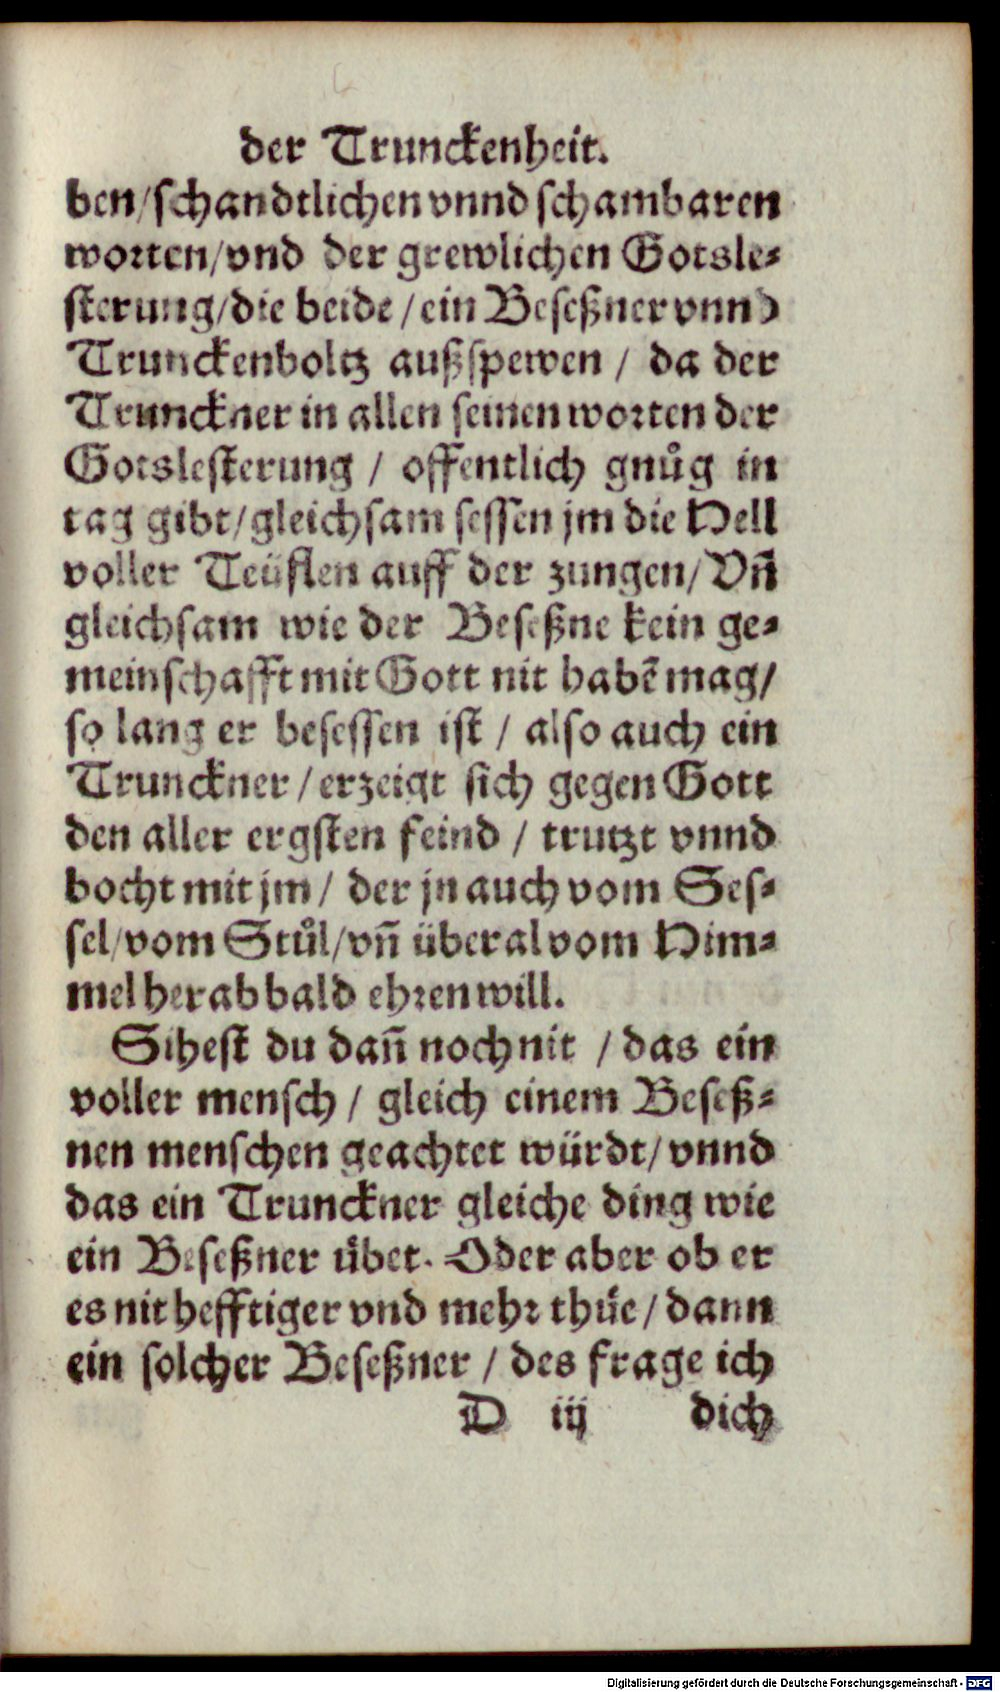 der Trunckenheit.
ben/schandtlichen vnnd schambaren
worten/vnd der grewlichen Gotsle-
sterung/die beide/ein Beseßner vnnd
Trunckenboltz außspewen / da der
Trunckner in allen seinen worten der
Gotslesterung / offentlich gnůg in
tag gibt/gleichsam sessen jm die Hell
voller Teüflen auff der zungen/Vñ
gleichsam wie der Beseßne kein ge-
meinschafft mit Gott nit habẽ mag/
so lang er besessen ist / also auch ein
Trunckner/erzeigt sich gegen Gott
den aller ergsten feind / trutzt vnnd
bocht mit jm/ der jn auch vom Ses-
sel/vom Stůl/vñ überal vom Him-
mel herab bald ehren will.
Sihest du dañ noch nit /das ein
voller mensch/ gleich einem Beseß-
nen menschen geachtet würdt/vnnd
das ein Trunckner gleiche ding wie
ein Beseßner übet. Oder aber ob er
es nit hefftiger vnd mehr thüe/dann
ein solcher Beseßner / des frage ich
D iij dich
Digitalisierung gefördert durch die Deutsche Forschungsgemeinschaft - DFG